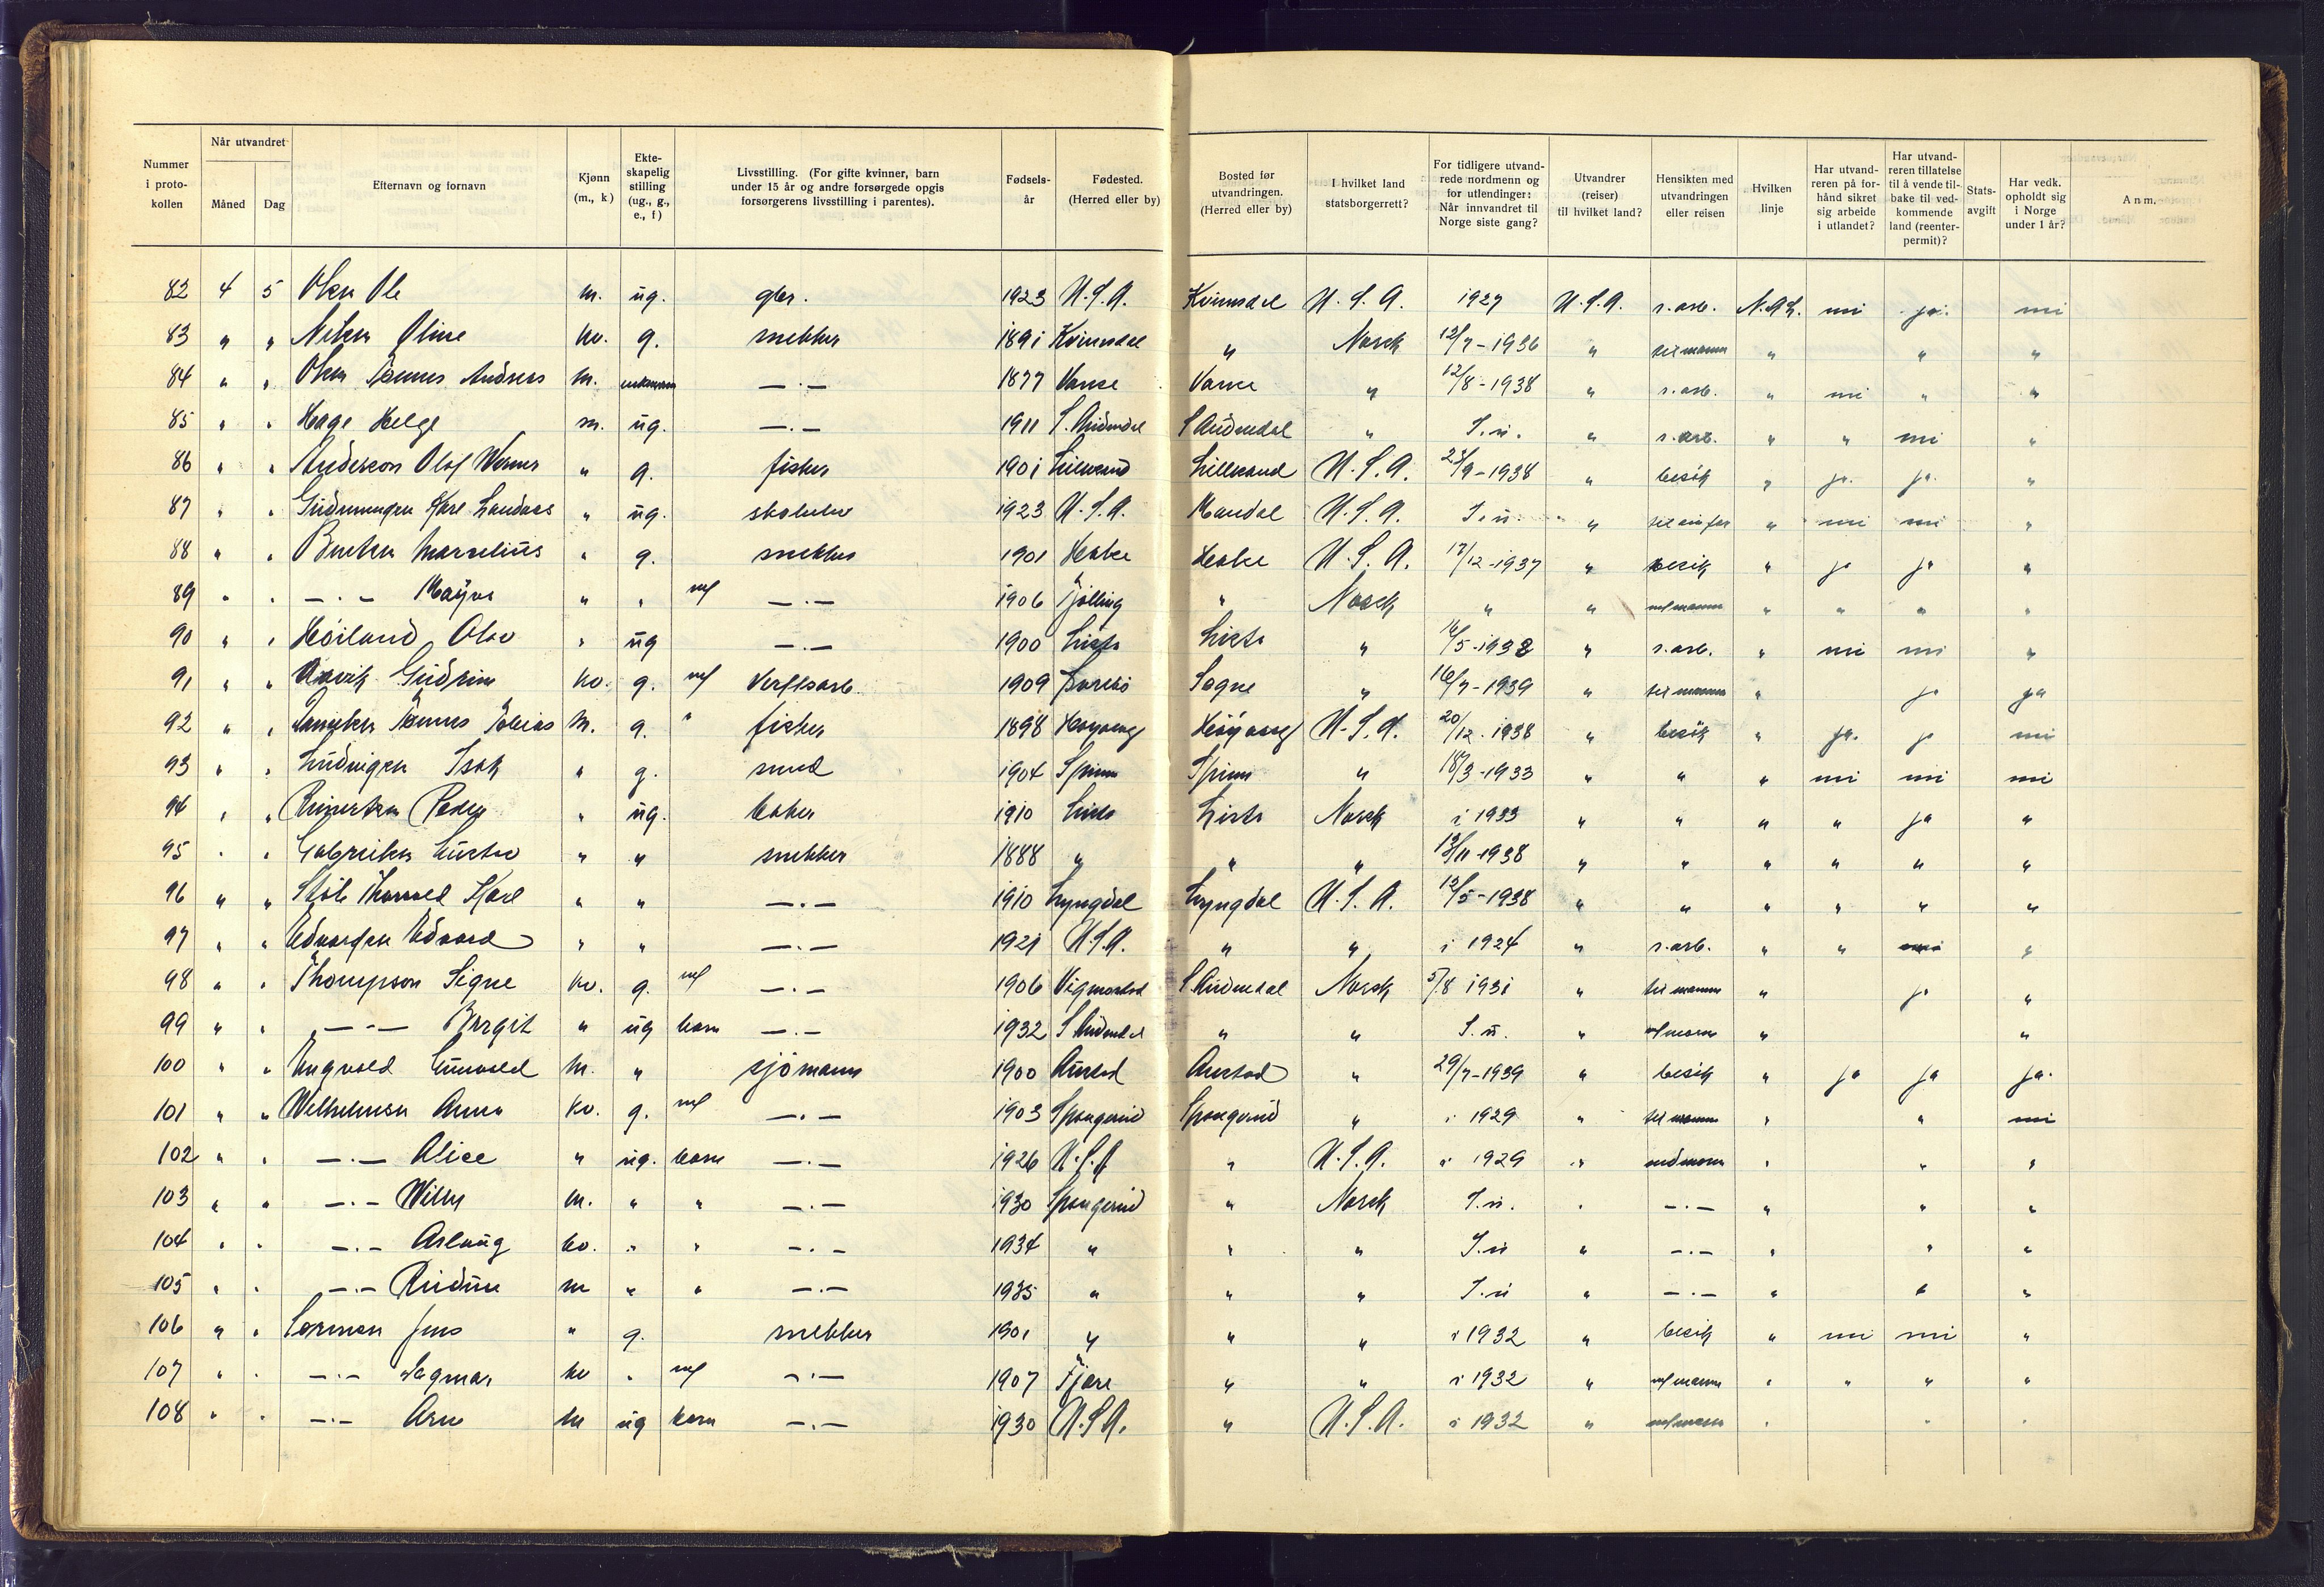 Nummer i protokollen | Når utvandret Måned | Dag | Efternavn og fornavn | Kjønn (m., k) | Ekteskapelig stilling (ug., g., e., f) | Livsstilling. (For gifte kvinner, barn under 15 år og andre forsørgede opgis forsørgerens livsstilling i parentes). | Fødselsår | Fødested. (Herred eller by) | Bosted før utvandringen. (Herred eller by) | I hvilket land statsborgerrett? | For tidligere utvandrede nordmenn og for utlendinger: Når innvandret til Norge siste gang? | Utvandrer (reiser) til hvilket land? | Hensikten med utvandringen eller reisen | Hvilken linje | Har utvandreren på forhånd sikret sig arbeide i utlandet? | Har utvandreren tillatelse til å vende tilbake til vedkommende land (reenterpermit)? | Statsavgift | Har vedk. opholdt sig i Norge under 1 år? | Anm.
82 4 5 Olsen Ole m. ug. 1923 U.S.A. Kvinesdal U.S.A. 1927 U.S.A. s. arb. N.A.L. nei ja. nei
83 " " Nilsen Oline kv. g. snekker 1891 Kvinesdal " Norsk 12/7-1936 " til mann " " "
84 " " Olsen Tønnes Andreas m. enkemann —.— 1877 Vanse Vanse " 12/8-1938 " s. arb. " nei " "
85 " " Hage Helge m. ug. —.— 1911 S. Audnedal S. Audnedal " S.u. " s. arb. " " nei "
86 " " Anderson Olaf Werner " g. fisker 1901 Lillesand Lillesand U.S.A. 23/9-1938 " besök " ja. ja. "
87 " " Gudmundsen Kåre Landaas " ug. skoleelev 1923 U.S.A. Mandal U.S.A. S.u. " til sin far " nei nei "
88 " " Berntsen Marselius " g. snekker 1901 Herbe Herbe U.S.A. 17/12-1937 " besök " ja ja "
89 " " —.— " " m/ —.— 1906 Tjölling " Norsk " " m/mann " " " "
90 " " Höiland Olav " ug —.— 1900 Lista Lista " 16/5-1938 " s. arb. " nei nei "
91 " " Gudrun kv. g. m/ Verftsarb. 1909 Søgne " 16/7-1939 " til mann " ja ja
92 " " Tønnes Tobias m. g. " fisker 1898 U.S.A. 20/12-1938 " besök " ja. ja nei
93 " " Ludvigsen Isak " g. smed 1904 Spinn Spinn " 18/3-1933 " " " nei nei nei
94 " " Reinertsen Peder " ug. baker 1910 Lista Lista Norsk i 1933 " " " " ja "
95 " " Gabrielsen Gustav " " snekker 1888 " " " 13/11-1938 " " " " " "
96 " " Thorvald Karl " " —.— 1910 Lyngdal Lyngdal U.S.A. 12/5-1938 " " " " " "
97 " " Edvardsen Edvard " " —.— 1921 U.S.A. " " i 1924 " s. arb. " " nei "
98 " " Thompson Signe kv. g. m/ —.— 1906 Vigmostad S. Audnedal Norsk 5/8 1931 " til mann " ja "
99 " " —"— Bergit " ug barn —.— 1932 S. Audnedal " " S.u. " m/moren " "
100 " " Engvald Gunvald m. " sjömann 1900 Austad Austad " 29/7-1939 " besök " ja ja ja.
101 " " Wilhelmsen Anna kv. g. m/ —.— 1903 Spangereid Spangereid " i 1929 " til mann " " nei
102 " " —.— Alice " ug. barn —.— 1926 U.S.A " U.S.A. i 1929 " med moren " " "
103 " " —.— Willy m. " " —.— 1930 Spangereid " Norsk S.u. " —.— " " "
104 " " —.— Aslaug kv. " " —.— 1934 " " " S.u " —.— " " "
105 " " —.— Reidun m " " —.— 1935 " " " S.u " —.— " " "
106 " " Jens " g. snekker 1901 " " " i 1932 " besök " nei nei "
107 " " —.— Dagmar kv " m/ —.— 1907 Fjære " " i 1932 " m/mann " " " "
108 " " —.— Arne m ug barn —.— 1930 U.S.A. " U.S.A. i 1932 " m/moren " " "